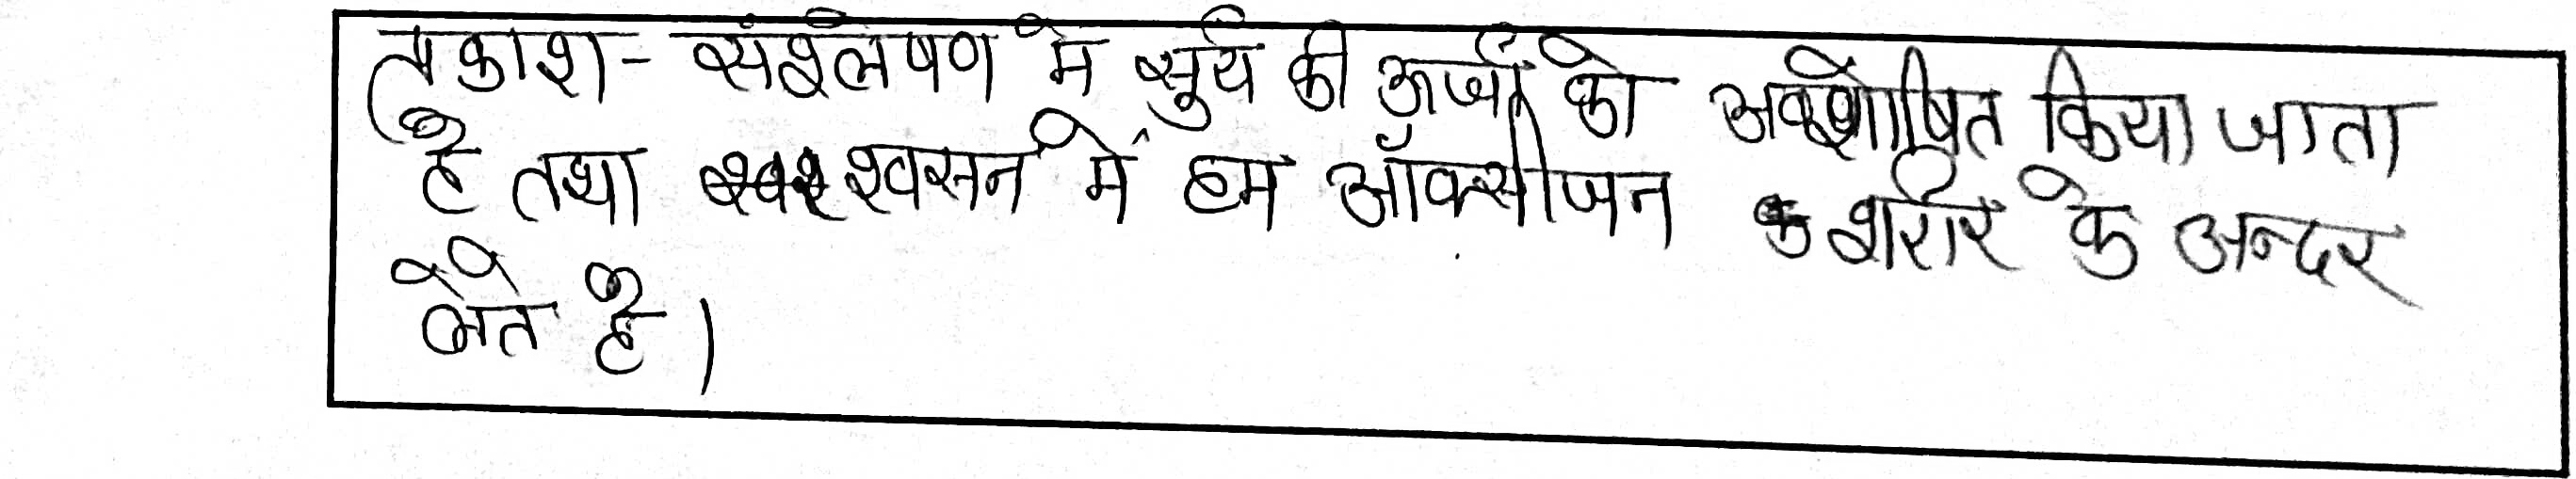 प्रकाश - संश्लेषण मे सुर्य की ऊर्जा को अवशोषित किया जाता
है तथा श्वसन में हम ऑक्सीजन शरीर के अन्दर
लेते है।